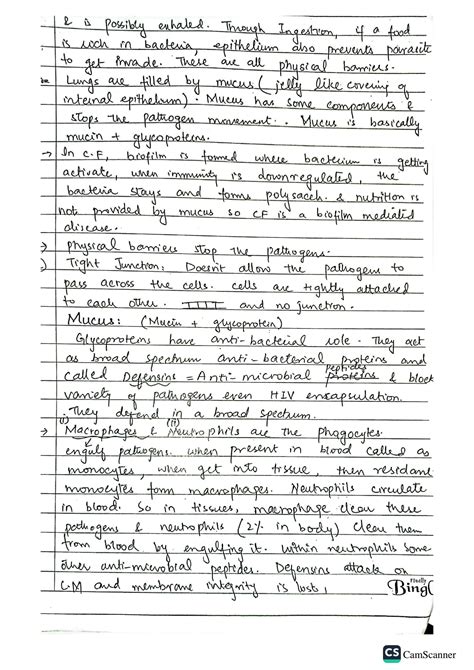 & is possibly exhaled. Through Ingestion, if a food
is rich in bacteria, epithelium also prevents parasite
to get invade. These are all physical barriers.
Lungs are filled by mucus (jelly like covering of
internal epithelium). Mucus has some components &
stops the pathogen movement. Mucus is basically
mucin + glycoproteins.
→ In C.F, biofilm is formed where bacterium is getting
activate, when immunity is downregulated, the
bacteria stays and forms polysacch. & nutrition is
not provided by mucus so CF is a biofilm mediated
disease.
→ physical barriers stop the pathogens.
Tight Junction: Doesn't allow the pathogen to
pass across the cells. cells are tightly attached
to each other. and no junction.
Mucus: (Mucin + glycoprotein)
Glycoproteins have anti-bacterial role. They act
as broad spectrum anti-bacterial proteins and
called Defensins = Anti-microbial proteins peptides & block
variety of pathogens even HIV encapsulation.
They defend in a broad spectrum.
→ (i) Macrophages & (ii) Neutrophils are the phagocytes.
engulf pathogens. when present in blood called as
monocytes, when get into tissue, then residant
monocytes form macrophages. Neutrophils circulate
in blood. So in tissues, macrophage clean these
pathogens & neutrophils (2% in body) clean them
from blood by engulfing it. Within neutrophils some
other anti-microbial peptides. Defensins attack on
CM and membrane integrity is lost,
CS CamScanner